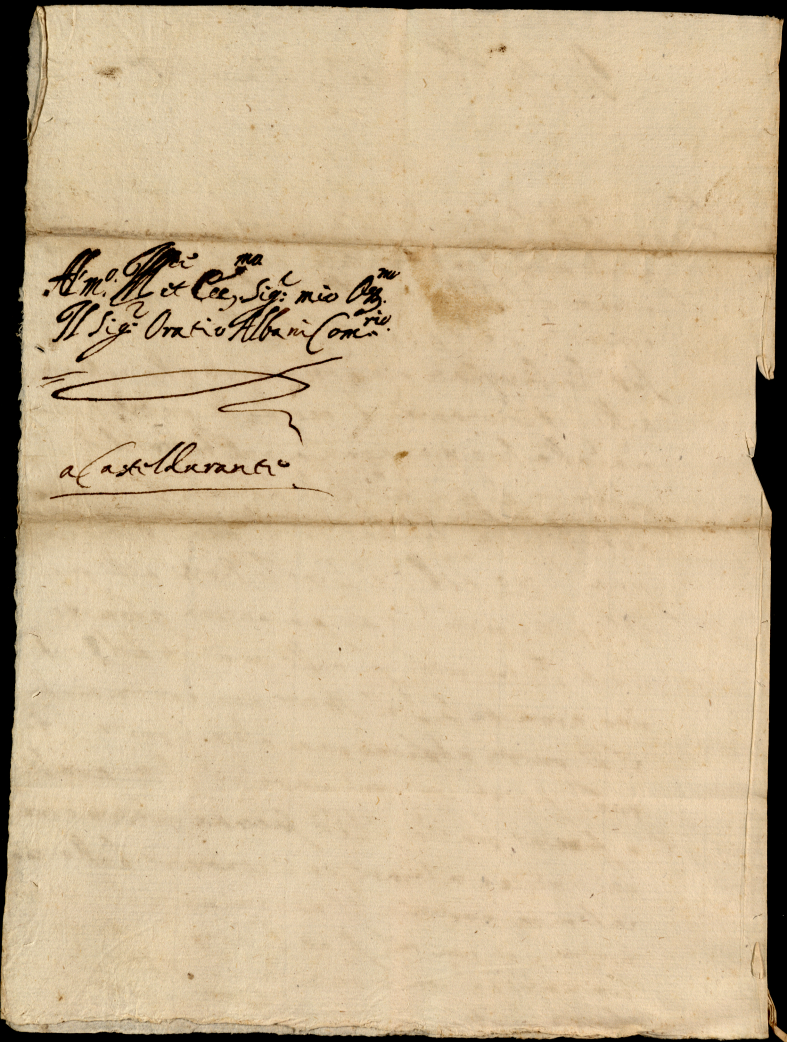 Al m.to M.co et Ecc.mo Sig.r mio Oss.mo
Il Sig.r Oratio Albani Com.rio
a Casteldurante